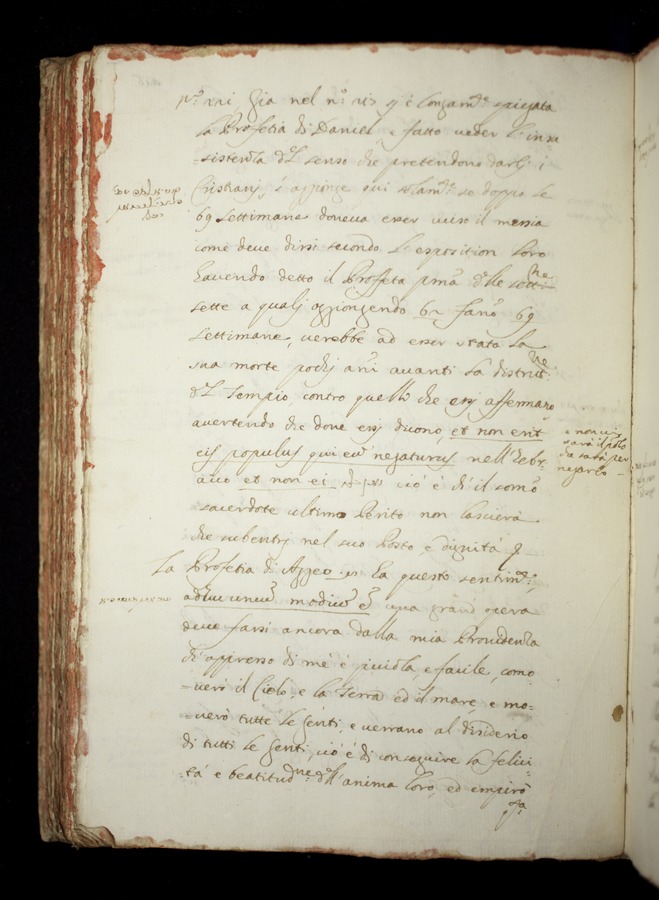 già nel n.º
La Profetia di Daniel e fatto veder l'insu
=sistenza del senso che pretendono darli i
Cristianj s'aggionge qui solam.te se doppo le
69 Settimane doveva esser uciso il messia
come deve dirsi secondo l'esposition loro
havendo detto il Proffeta p.ma delle
sette a qualj aggiongendo 62 fano 69
Settimane, verebbe ad esser stata la
sua morte pochj ani avanti la distrut.ne
del Tempio, contro quello che essj affermano
avertendo che dove essj dicono, et non erit
eis populus qui eũ negaturus nell'Hebr.
aico et non ei ciò è ch'il som̃o
sacerdote ultimo Perito non lascierà
che subentrj nel suo Posto e dignità
La Profetia di Aggeo ha questo sentim.to,
adhuc unuũ modicũ e una grand'opera
deve farsi ancora dalla mia Providenza
ch'appresso di me è picciola, e facile, como
=verò il Cielo, e la Terra ed il mare, e mo=
=verò tutte le Genti, e verrano al desiderio
di tutti le Genti, ciò è di conseguire la felici
=tà e beatitud.ne dell'anima loro, ed empirò
e non vi
sarà il polo
che sarà per
negarlo